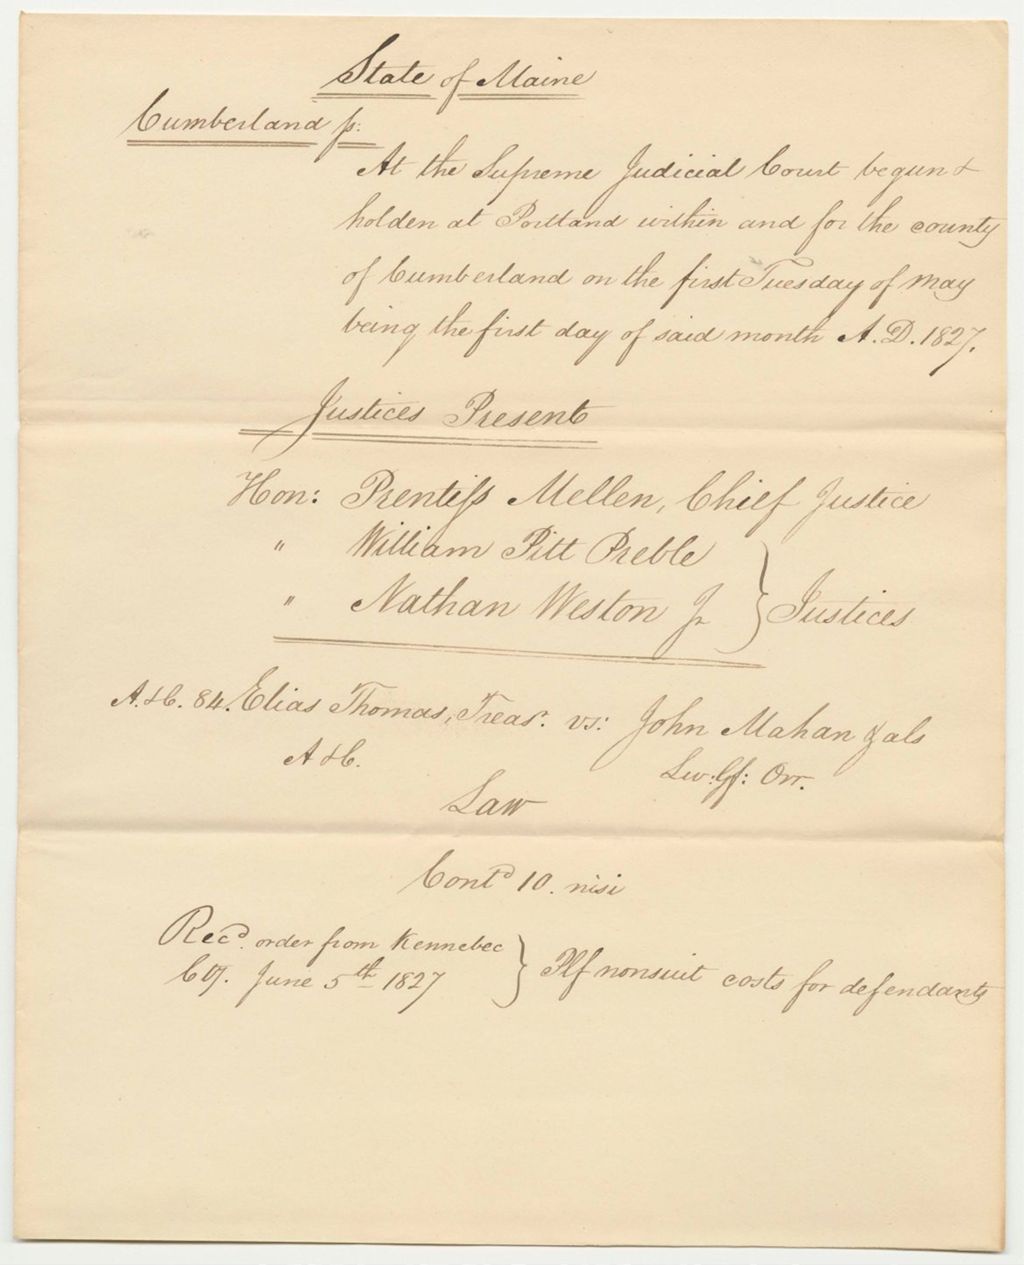 State of Maine
Cumberland ss:
At the Supreme Judicial Court begun &
holden at Portland within and for the county
of Cumberland on the first Tuesday of May
being the first day of said month A.D. 1827.
Justices Present
Hon: Prentiss Mellen, Chief Justice
" William Pitt Preble
" Nathan Weston Jr } Justices
A.&C. 84. Elias Thomas, Treasr. vs: John Mahan & als
A & C. Orr.
Law
Contd 10. nisi
Recd. order from Kennebec
Co. June 5th 1827 } Plf nonsuit costs for defendants